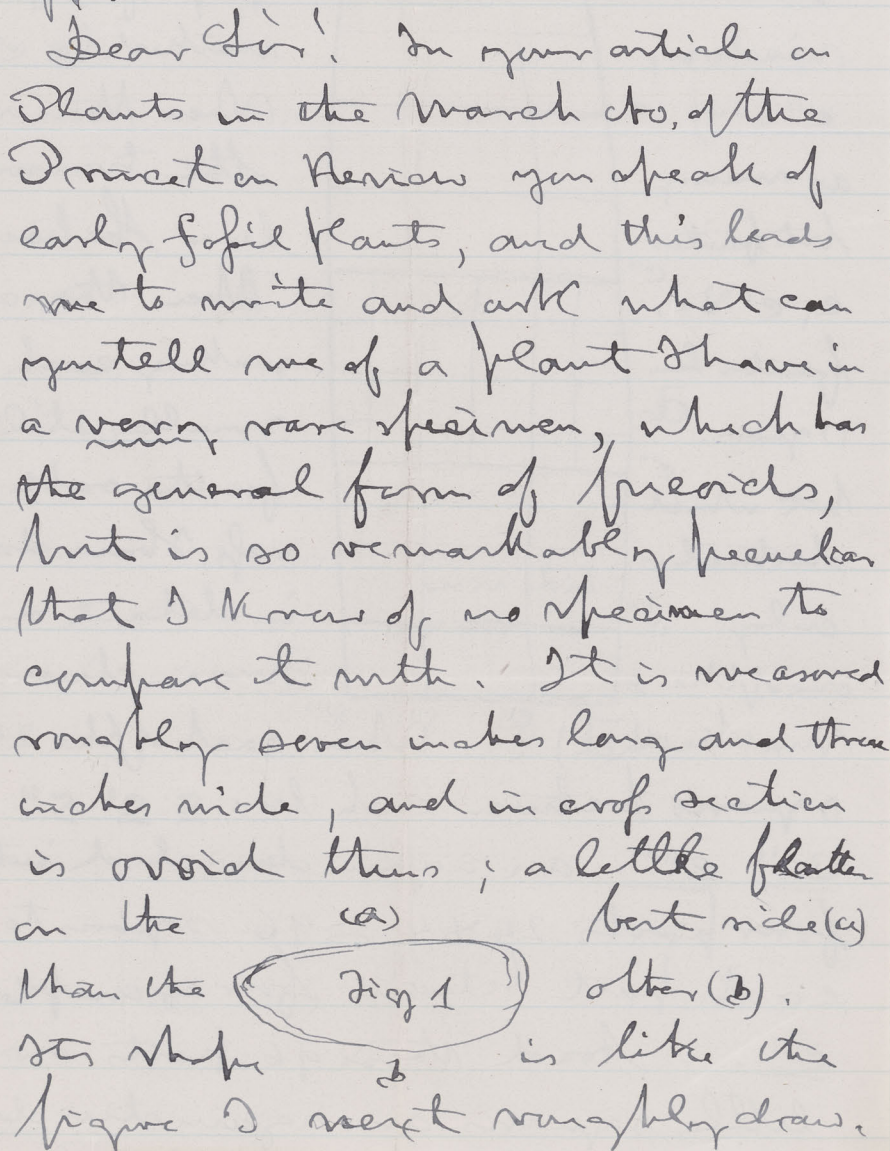 Dear Sir! In your article on
Plants in the March No. of the
Princeton Review you speak of
early fossil plants, and this leads
me to write and ask what can
you tell me of a plant I have in
a very rare specimen, which has
the general form of fucoids,
but is so remarkably peculiar
that I know of no specimen to
compare it with. It is measured
roughly seven inches long and three
inches wide, and in cross section
is ovoid thus; a little flatter
on the (a) best side (a)
than the Fig 1 other (b).
Its shape b is like the
figure I next roughly draw.